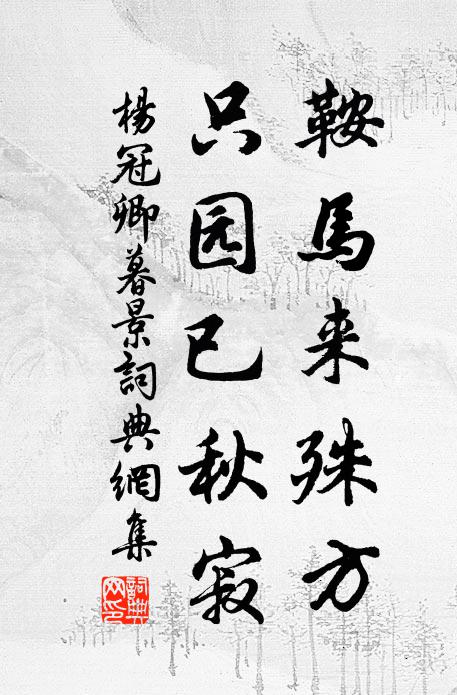 鞍馬来殊方
只园已秋寂
楊冠卿暮景詞典網集
詞典